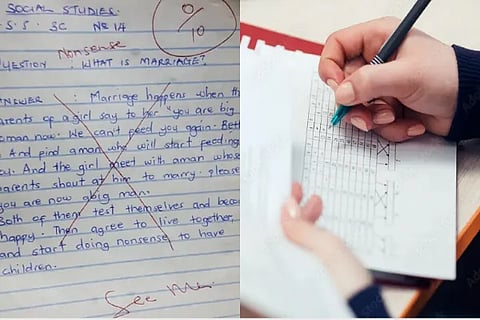 SOCIAL STUDIES.
S.S. 3C No 14
0/10
Nonsense
QUESTION : WHAT IS MARRIAGE?
ANSWER : Marriage happens when the
parents of a girl say to her "you are big
woman now. We can't feed you again. Bett
And find aman who will start feeding
And the girl meet with aman whose
parents shout at him to marry. please
you are now a big man.
Both of them test themselves and beco
happy. Then agree to live together,
and start doing nonsense to have
children.
See Me.